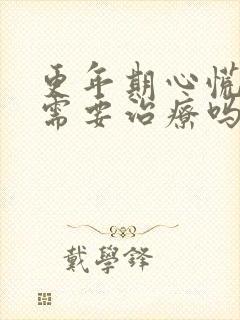 更年期心慌
需要治疗吗
戴學鋒